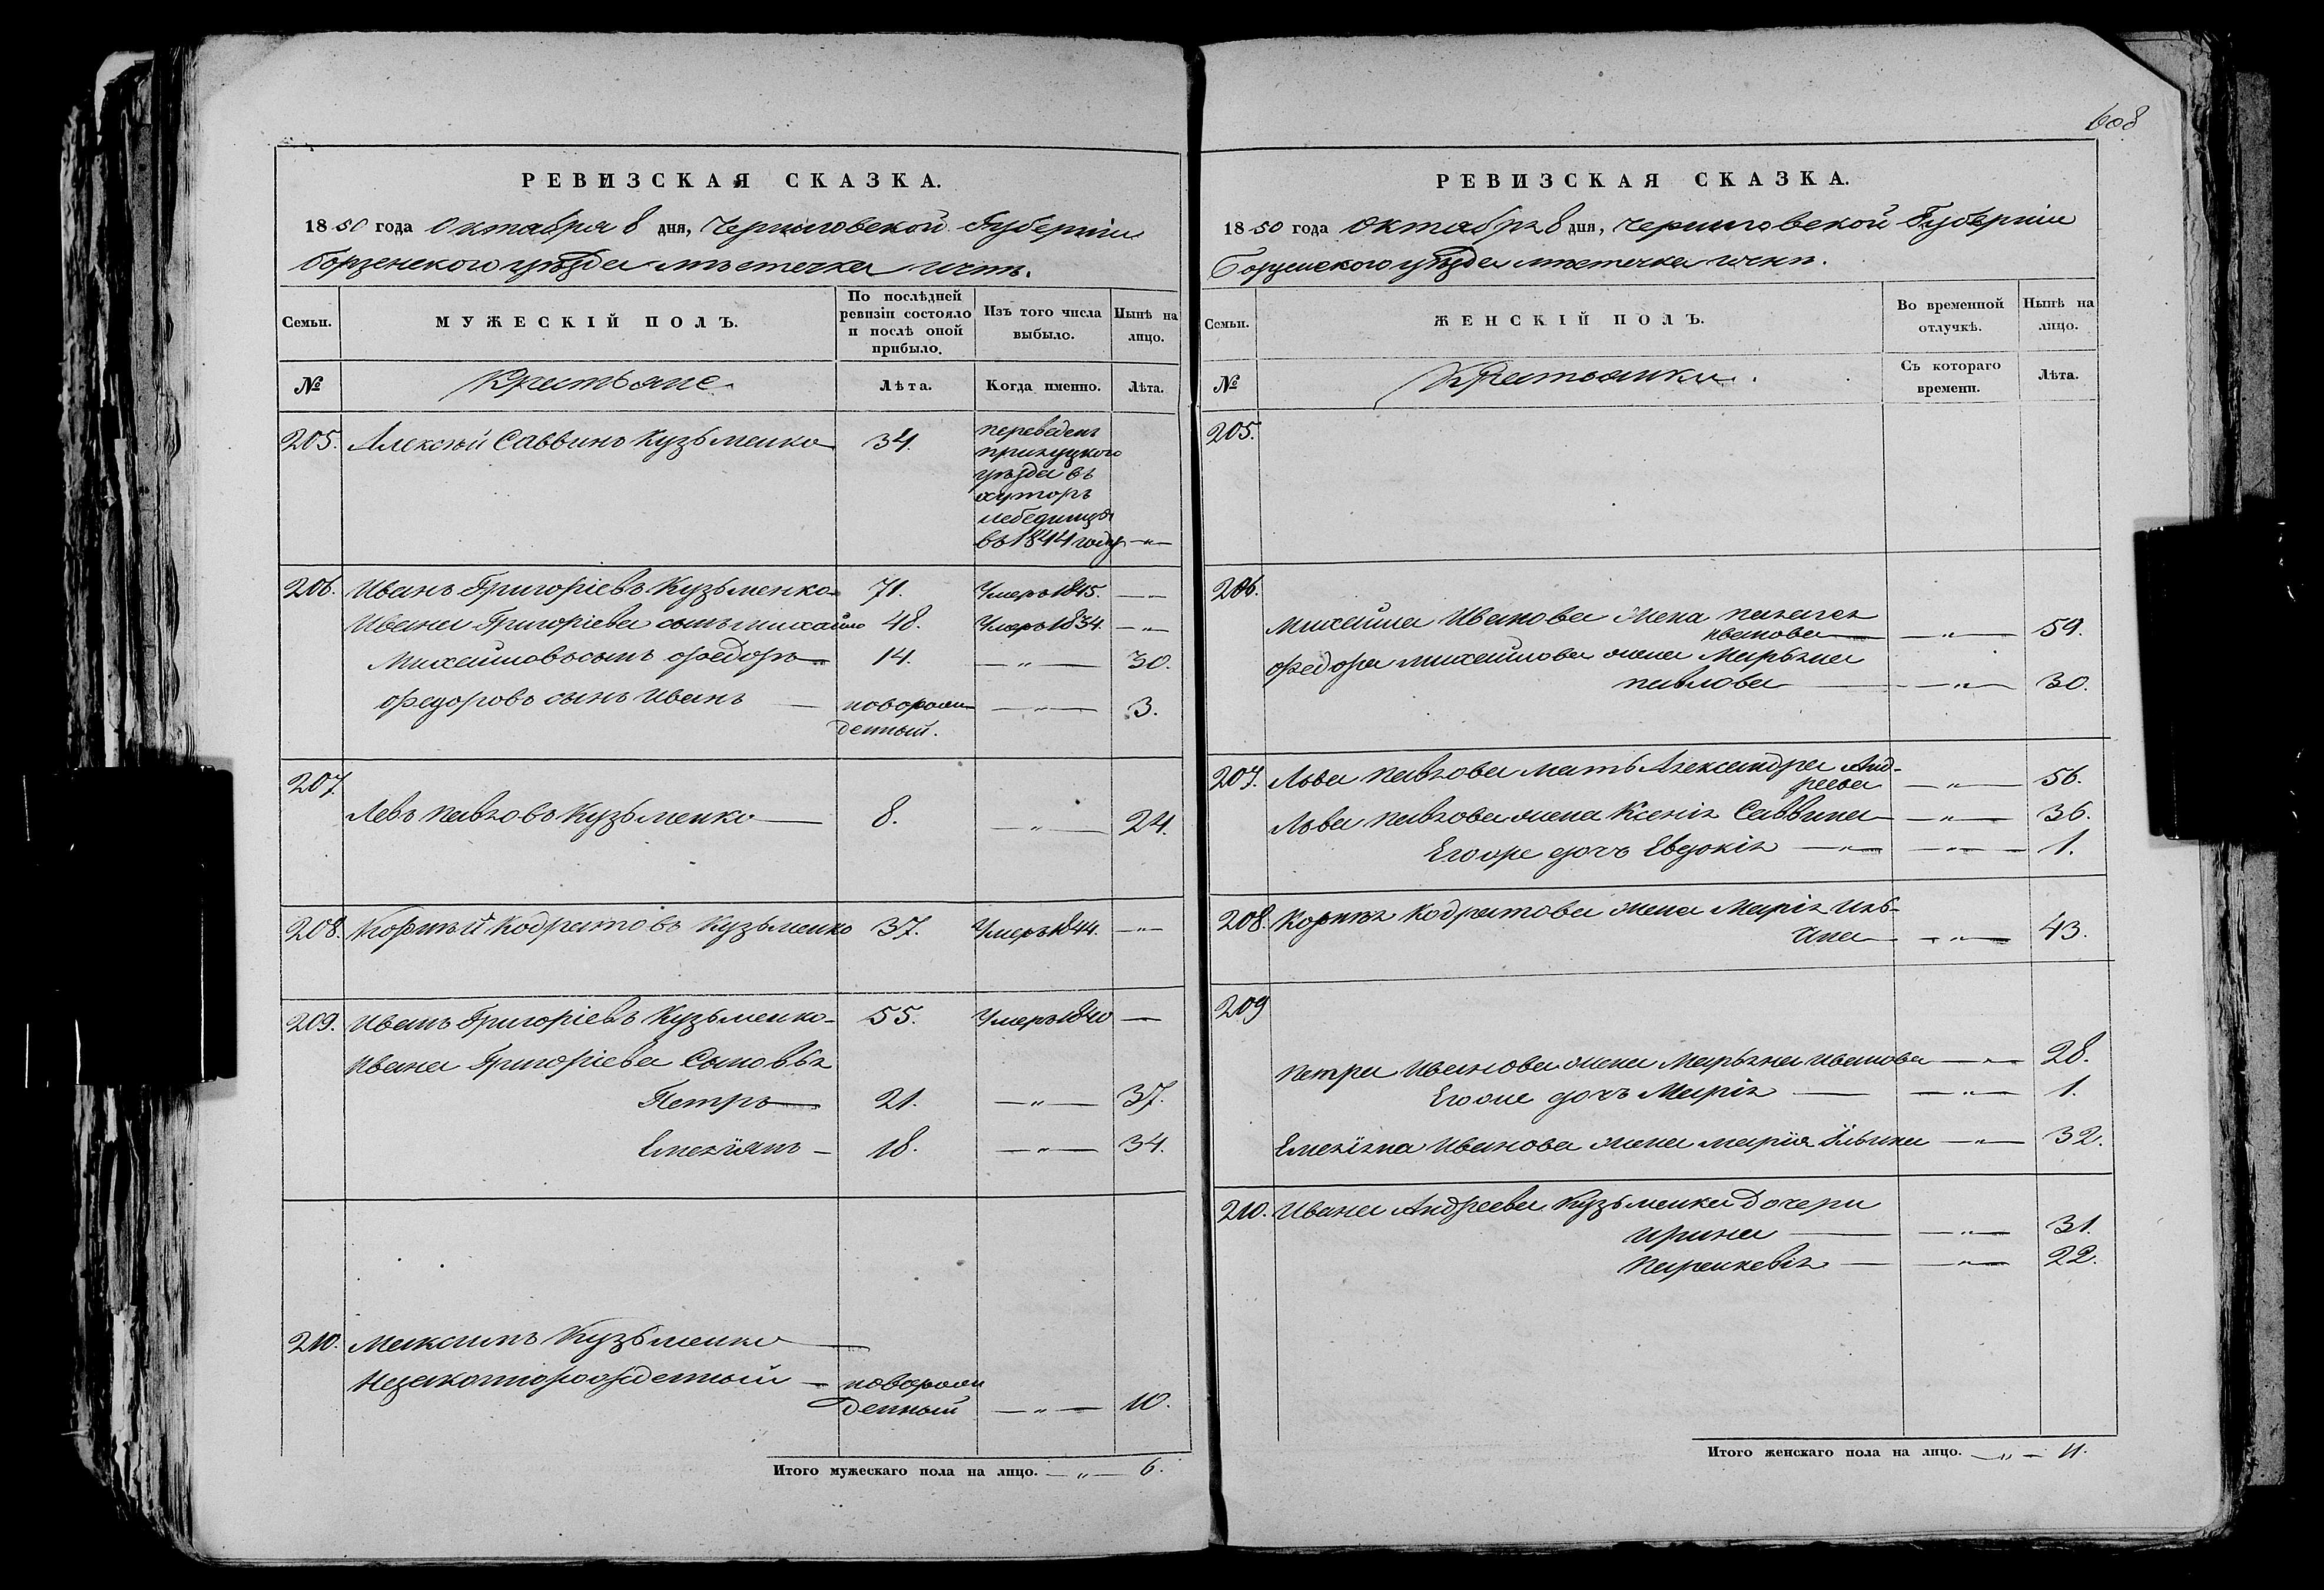 РЕВИЗСКАЯ СКАЗКА.
1850 года Октября 8 дня, Черниговской Губерніи
Борзенского уѣзда мѣстечка ични.
Семьи.
МУЖЕСКІЙ ПОЛЪ.
По послѣдней ревизіи состояло и послѣ оной прибыло.
Изъ того числа выбыло.
Нынѣ на лицо.
№
Крестьяне
Лѣта.
Когда именно.
Лѣта.
205. Алексѣй Саввинъ Кузьменко 34.
переведенъ
прилуцкого
уѣзда въ
хуторъ
въ 1844 году —„—
206. Иванъ Григоріевъ Кузьменко 71. Умеръ 1845. —„—
Ивана Григоріева сынъ михайло 48. Умеръ 1834. —„—
Михайловъ сынъ федоръ 14. —„— 30.
федоровъ сынъ Иванъ — новорож —„— 3.
денный.
207.
Левъ павловъ Кузьменко — 8. —„— 24.
208. Корнѣй Кодратовъ Кузьменко 37. Умеръ 1844. —„—
209. Иванъ Григоріевъ Кузьменко 55. Умеръ 1840 —
Ивана Григоріева Сыновья
Петръ — 21. —„— 37.
Емеліянъ — 18. —„— 34.
210. Максимъ Кузьменко —
Незаконнорожденный — новорож
денный —„— 10.
Итого мужескаго пола на лицо. —„— 6.
608
РЕВИЗСКАЯ СКАЗКА.
1850 года Октября 8 дня, Черниговской Губерніи
Борзенского уѣзда мѣстечка ични.
Семьи.
ЖЕНСКІЙ ПОЛЪ.
Во временной отлучкѣ.
Нынѣ на лицо.
№
Крестьянки.
Съ котораго времени.
Лѣта.
205.
206.
Михайла Иванова жена пелагея
иванова —„— 59.
федора михайлова жена Марьяна
павлова —„— 30.
207. Льва павлова мать Александра Анд-
реева —„— 56.
Льва павлова жена Ксенія Саввина —„— 36.
Его оре дочь Евдокія —„— —„— 1.
208. Корнѣя Кодратова жена Марія Иль-
ина —„— 43.
209
петра Иванова жена Марьяна иванова —„— 28.
Его оже дочь Марія — —„— 1.
Емеліяна Иванова жена марія Ильина —„— 32.
210. Ивана Андреева Кузьменка дочери
Ирина — —„— 31.
Параскевія — —„— 22.
Итого женскаго пола на лицо. —„— 11.